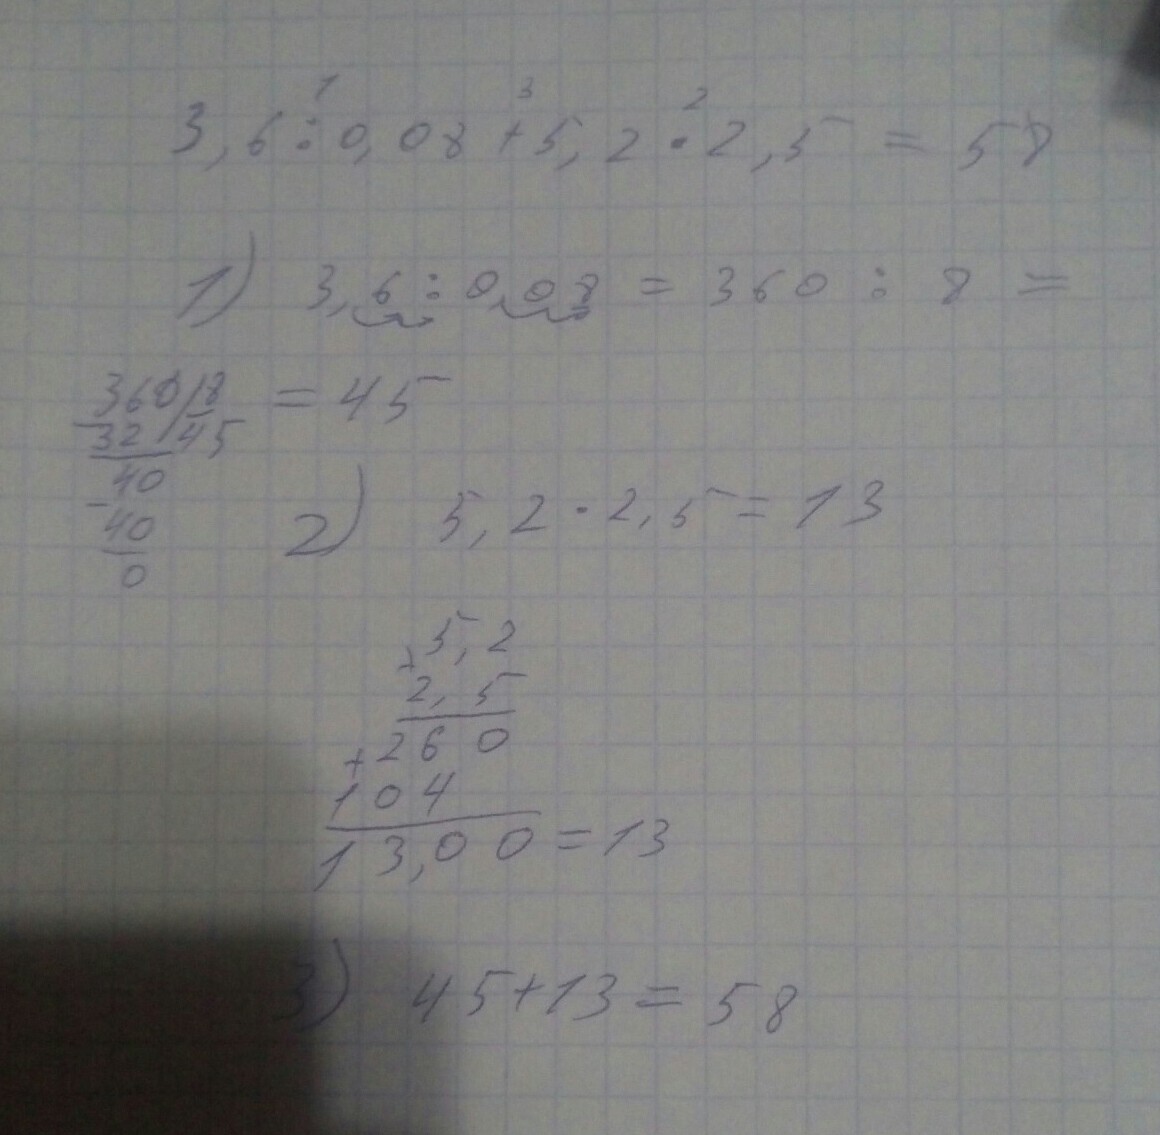 1 3 2
3,6:0,08+5,2·2,5=58
1) 3,6:0,08=360:8=
360 8 =45
-32 45
40
-40
0
2) 5,2·2,5=13
×5,2
2,5
+260
104
13,00=13
3) 45+13=58